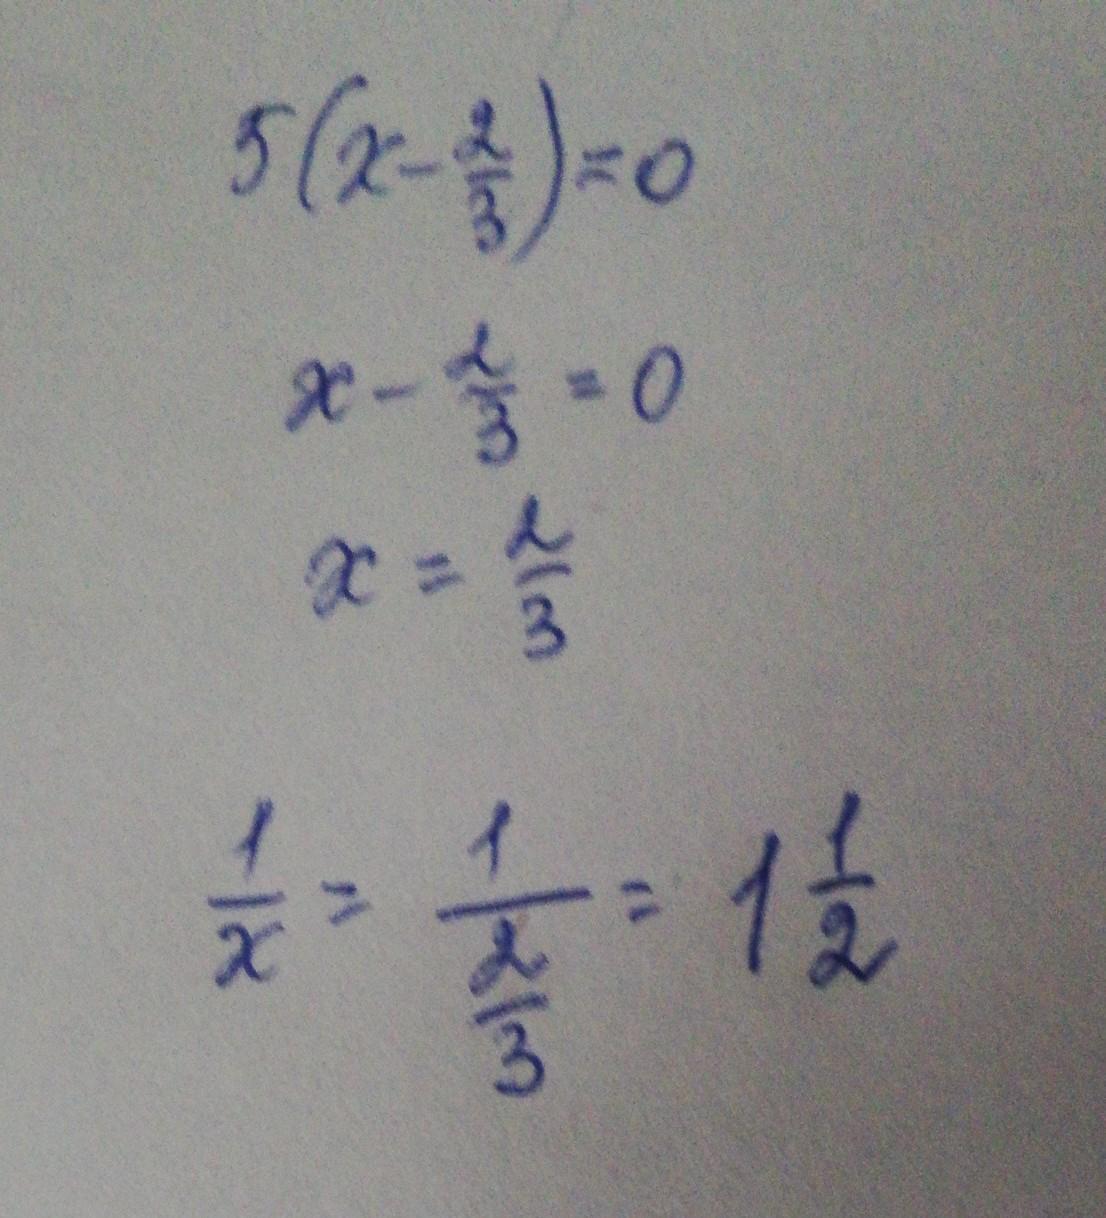 5(x - 2/3) = 0
x - 2/3 = 0
x = 2/3
1/x = 1/(2/3) = 1 1/2